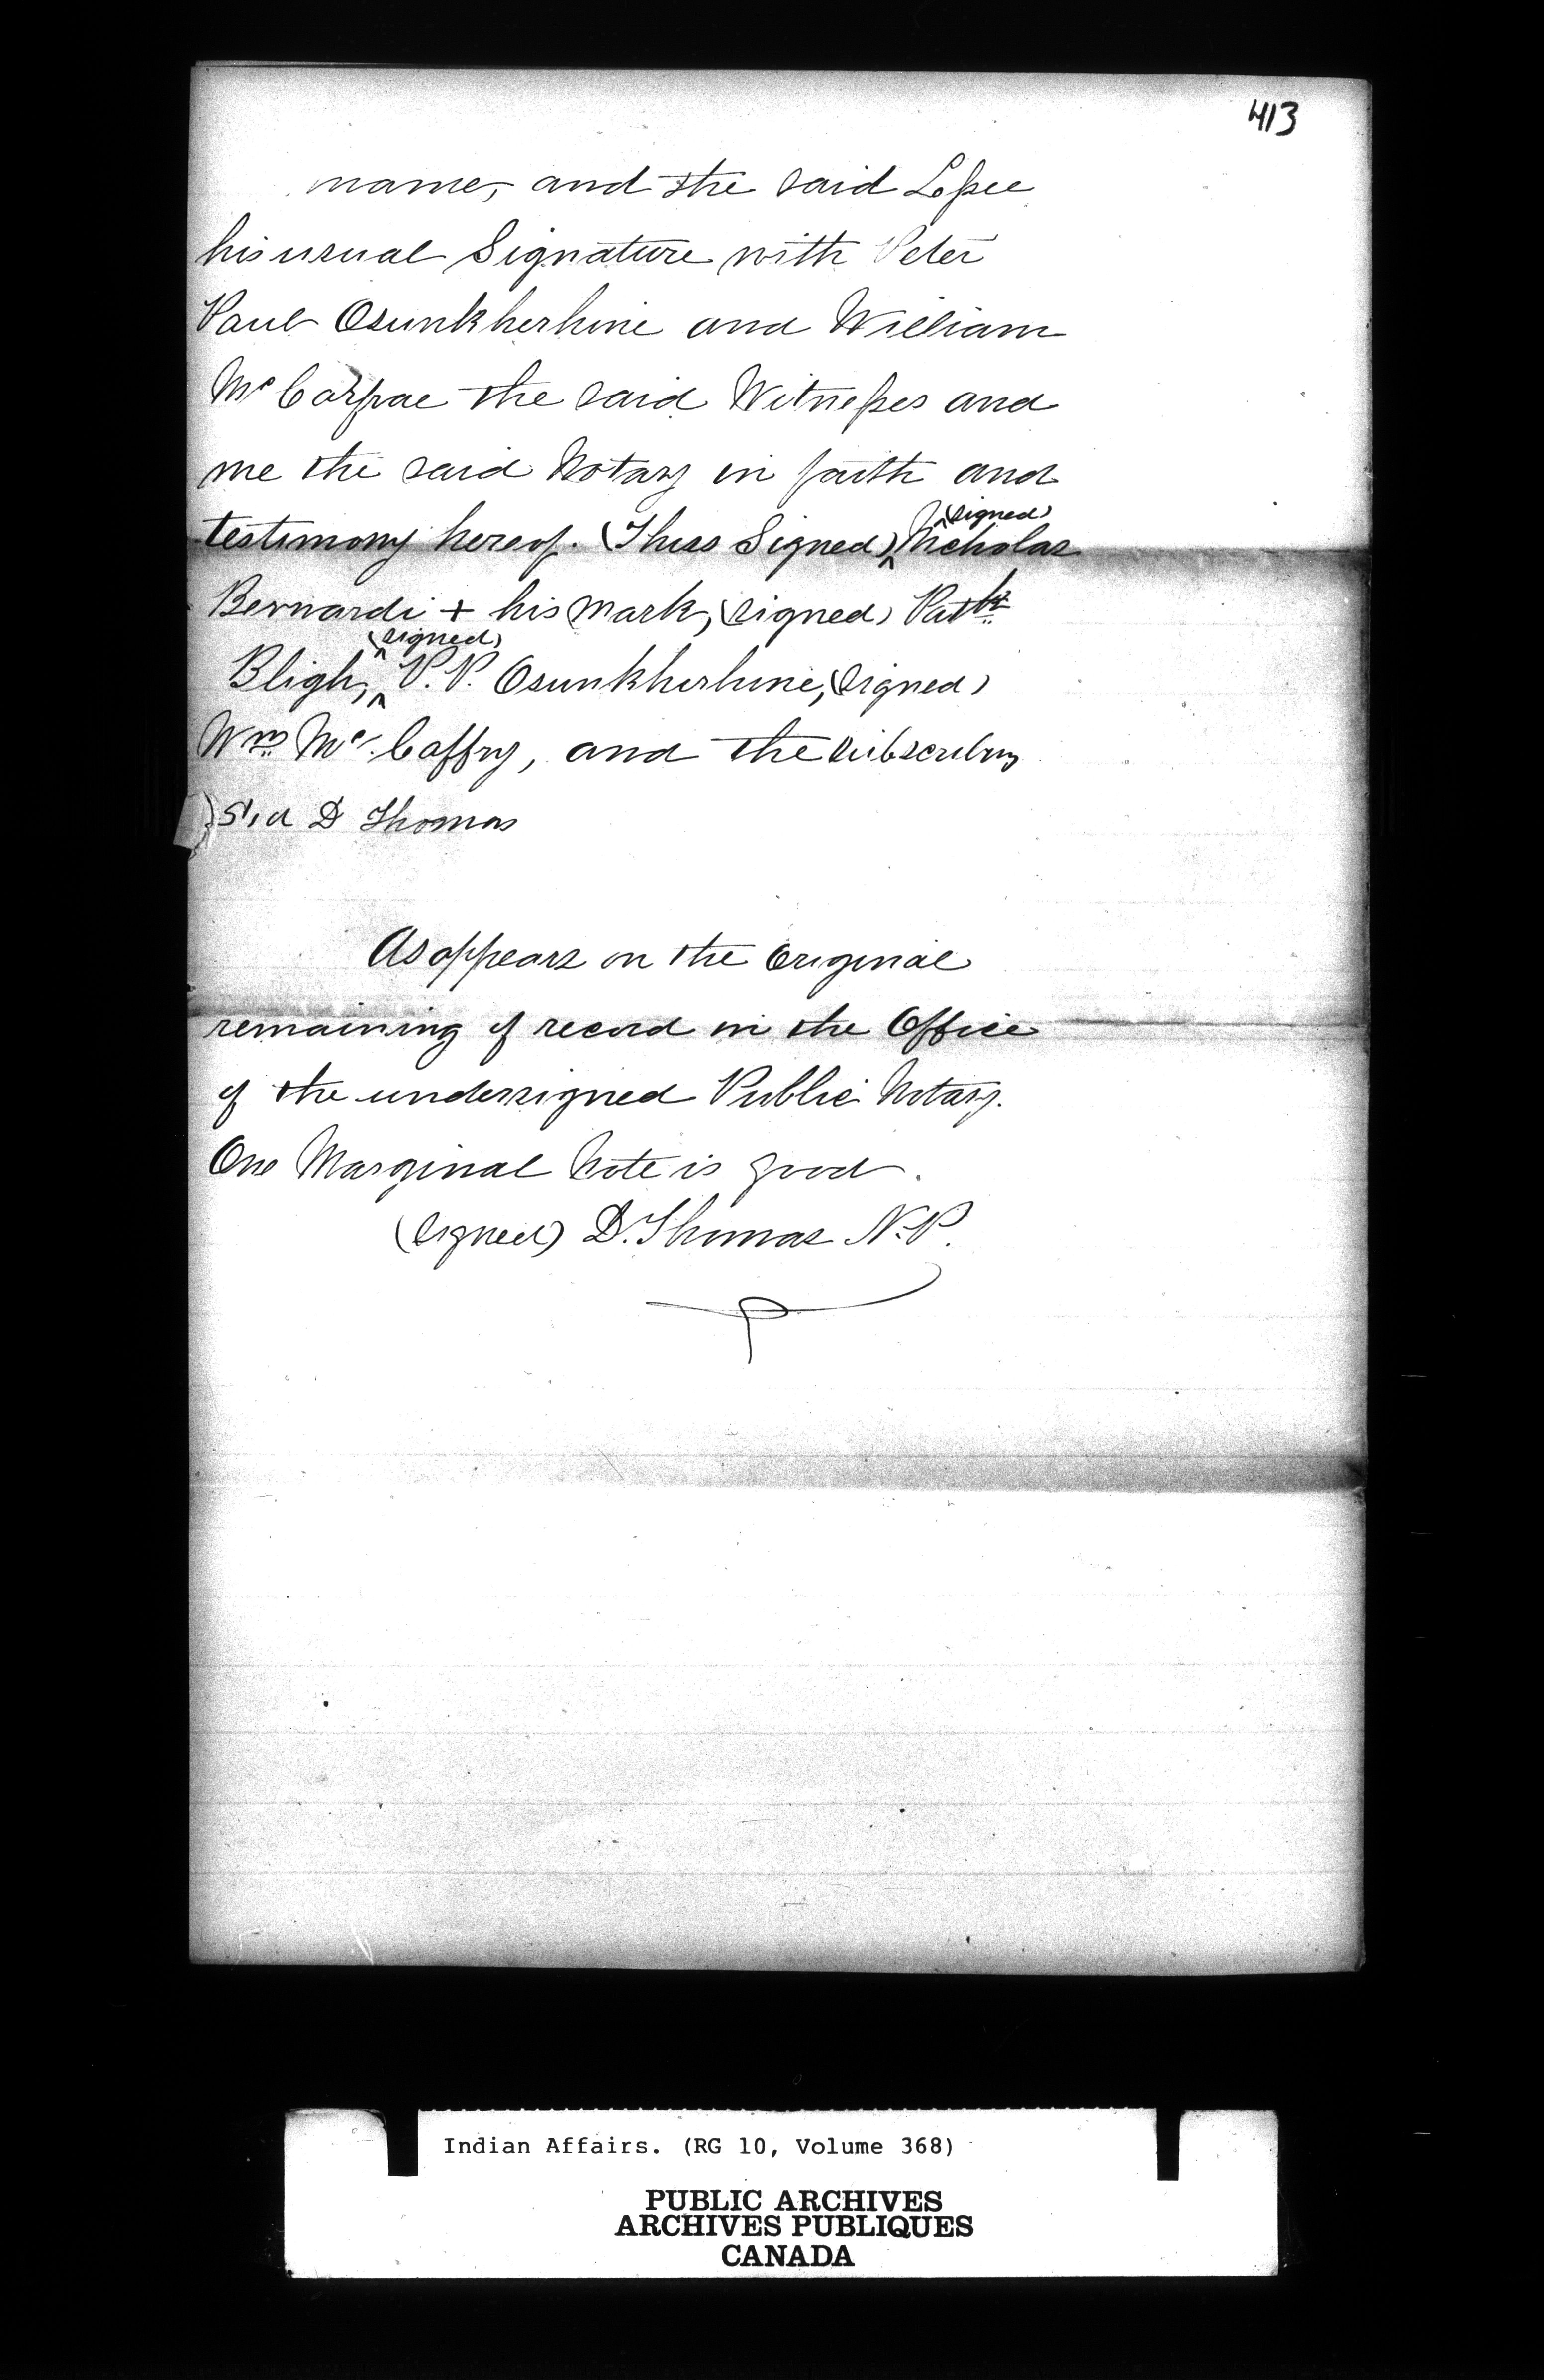 413
name, and the said Lessee
his usual Signature with Peter
Paul Osunkherhine and William
Mc the said Witnesses and
me the said Notary in faith and
testimony hereof. (Thus Signed) (signed) Nicholas
Bernardi + his mark, (signed) Patk
Bligh, (signed) P. P. Osunkherhine, (signed)
Wm Mc. Caffry, and the subscribing
D Thomas
As appears on the Original
remaining of record in the Office
of the undersigned Public Notary.
One Marginal Note is good.
(signed) D. Thomas N.P.
Indian Affairs. (RG 10, Volume 368)
PUBLIC ARCHIVES
ARCHIVES PUBLIQUES
CANADA